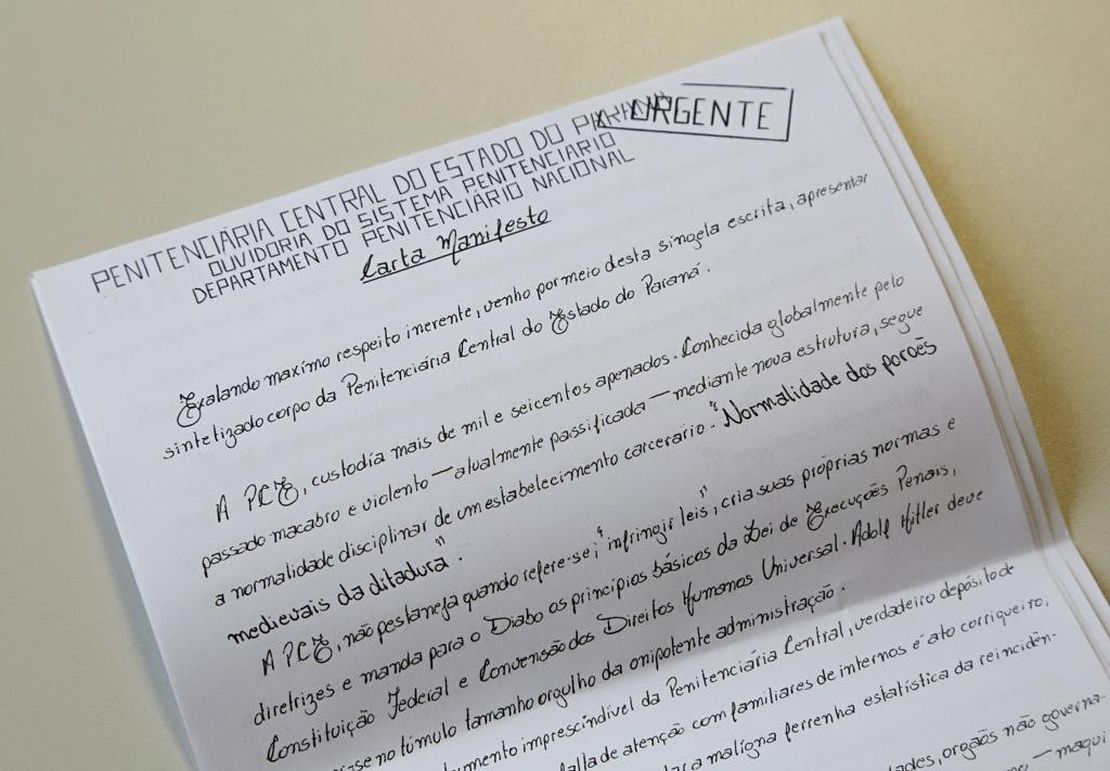 URGENTE
PENITENCIÁRIA CENTRAL DO ESTADO DO PARANÁ
OUVIDORIA DO SISTEMA PENITENCIÁRIO
DEPARTAMENTO PENITENCIÁRIO NACIONAL
Carta Manifesto
Exalando maximo respeito inerente, venho por meio desta singela escrita, apresentar
sintetizado corpo da Penitenciária Central do Estado do Paraná.
A PCE, custodia mais de mil e seicentos apenados. Conhecida globalmente pelo
passado macabro e violento — atualmente passificada — mediante nova estrutura, segue
a normalidade disciplinar de um estabelecimento carcerario. "Normalidade dos porões
medievais da ditadura".
A PCE, não pestaneja quando refere-se; "infringir leis", cria suas próprias normas e
diretrizes e manda para o Diabo os princípios básicos da Lei de Execuções Penais,
Constituição Federal e Convensão dos Direitos Humanos Universal. Adolf Hitler deve
-se no túmulo tamanho orgulho da onipotente administração.
imprescindível da Penitenciária Central, verdadeiro depósito de
falta de atenção com familiares de internos é ato corriqueiro,
a maligna ferrenha estatistica da reincidên-
orgãos não governa-
— maqui